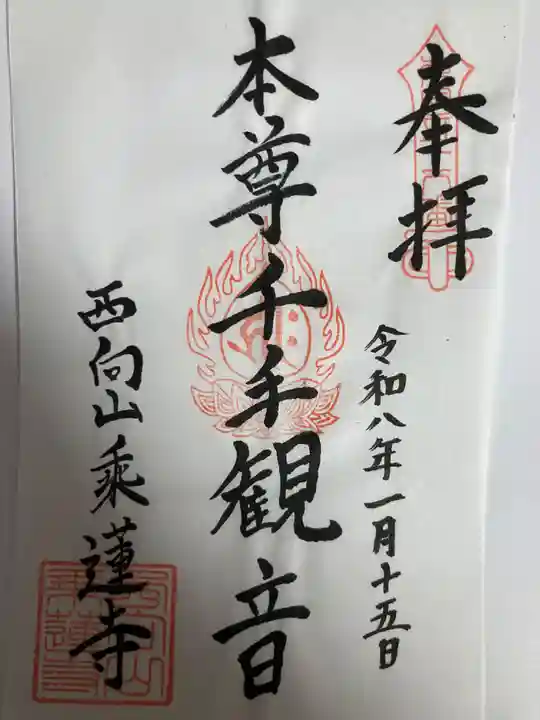 奉拝
令和八年一月十五日
本尊千手観音
西向山乘蓮寺